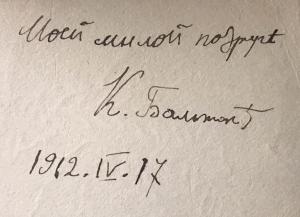 Моей милой подруге
К. Бальмонт
1912.IV.17